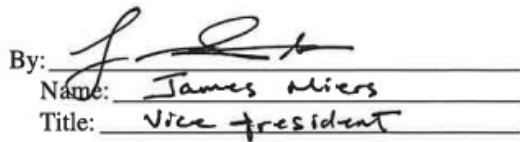 By:
Name: James Miers
Title: Vice President